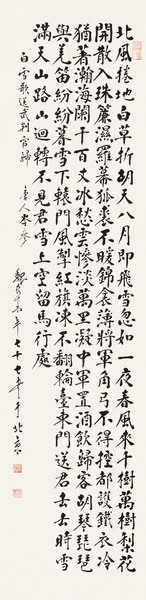 北風捲地白草折胡天八月即飛雪忽如一夜春風來千樹萬樹梨花
開散入珠簾濕羅幕狐裘不暖錦衾薄將軍角弓不得控都護鐵衣冷
猶著瀚海闌干百丈冰愁雲慘淡萬里凝中軍置酒飲歸客胡琴琵琶
與羌笛紛紛暮雪下轅門風掣紅旗凍不翻輪臺東門送君去去時雪
滿天山路山迴轉不見君雪上空留馬行處
白雪歌送武判官歸 唐人岑參
年七十七